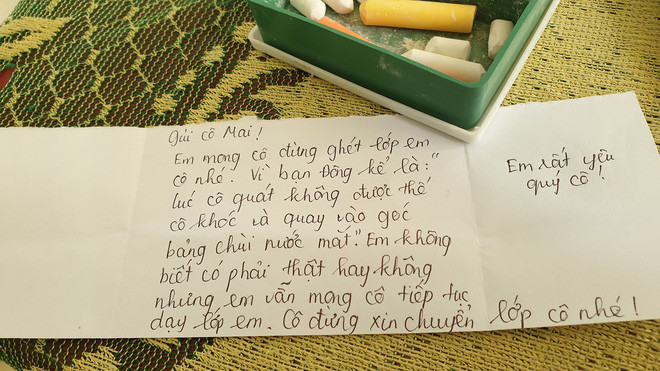 Gửi cô Mai!
Em mong cô đừng ghét lớp em
cô nhé. Vì bạn Đông kể là: "
lúc cô quát không được thế
cô khóc và quay vào góc
bảng chùi nước mắt". Em không
biết có phải thật hay không
nhưng em vẫn mong cô tiếp tục
dạy lớp em. Cô đừng xin chuyển lớp cô nhé!
Em rất yêu
quý cô!